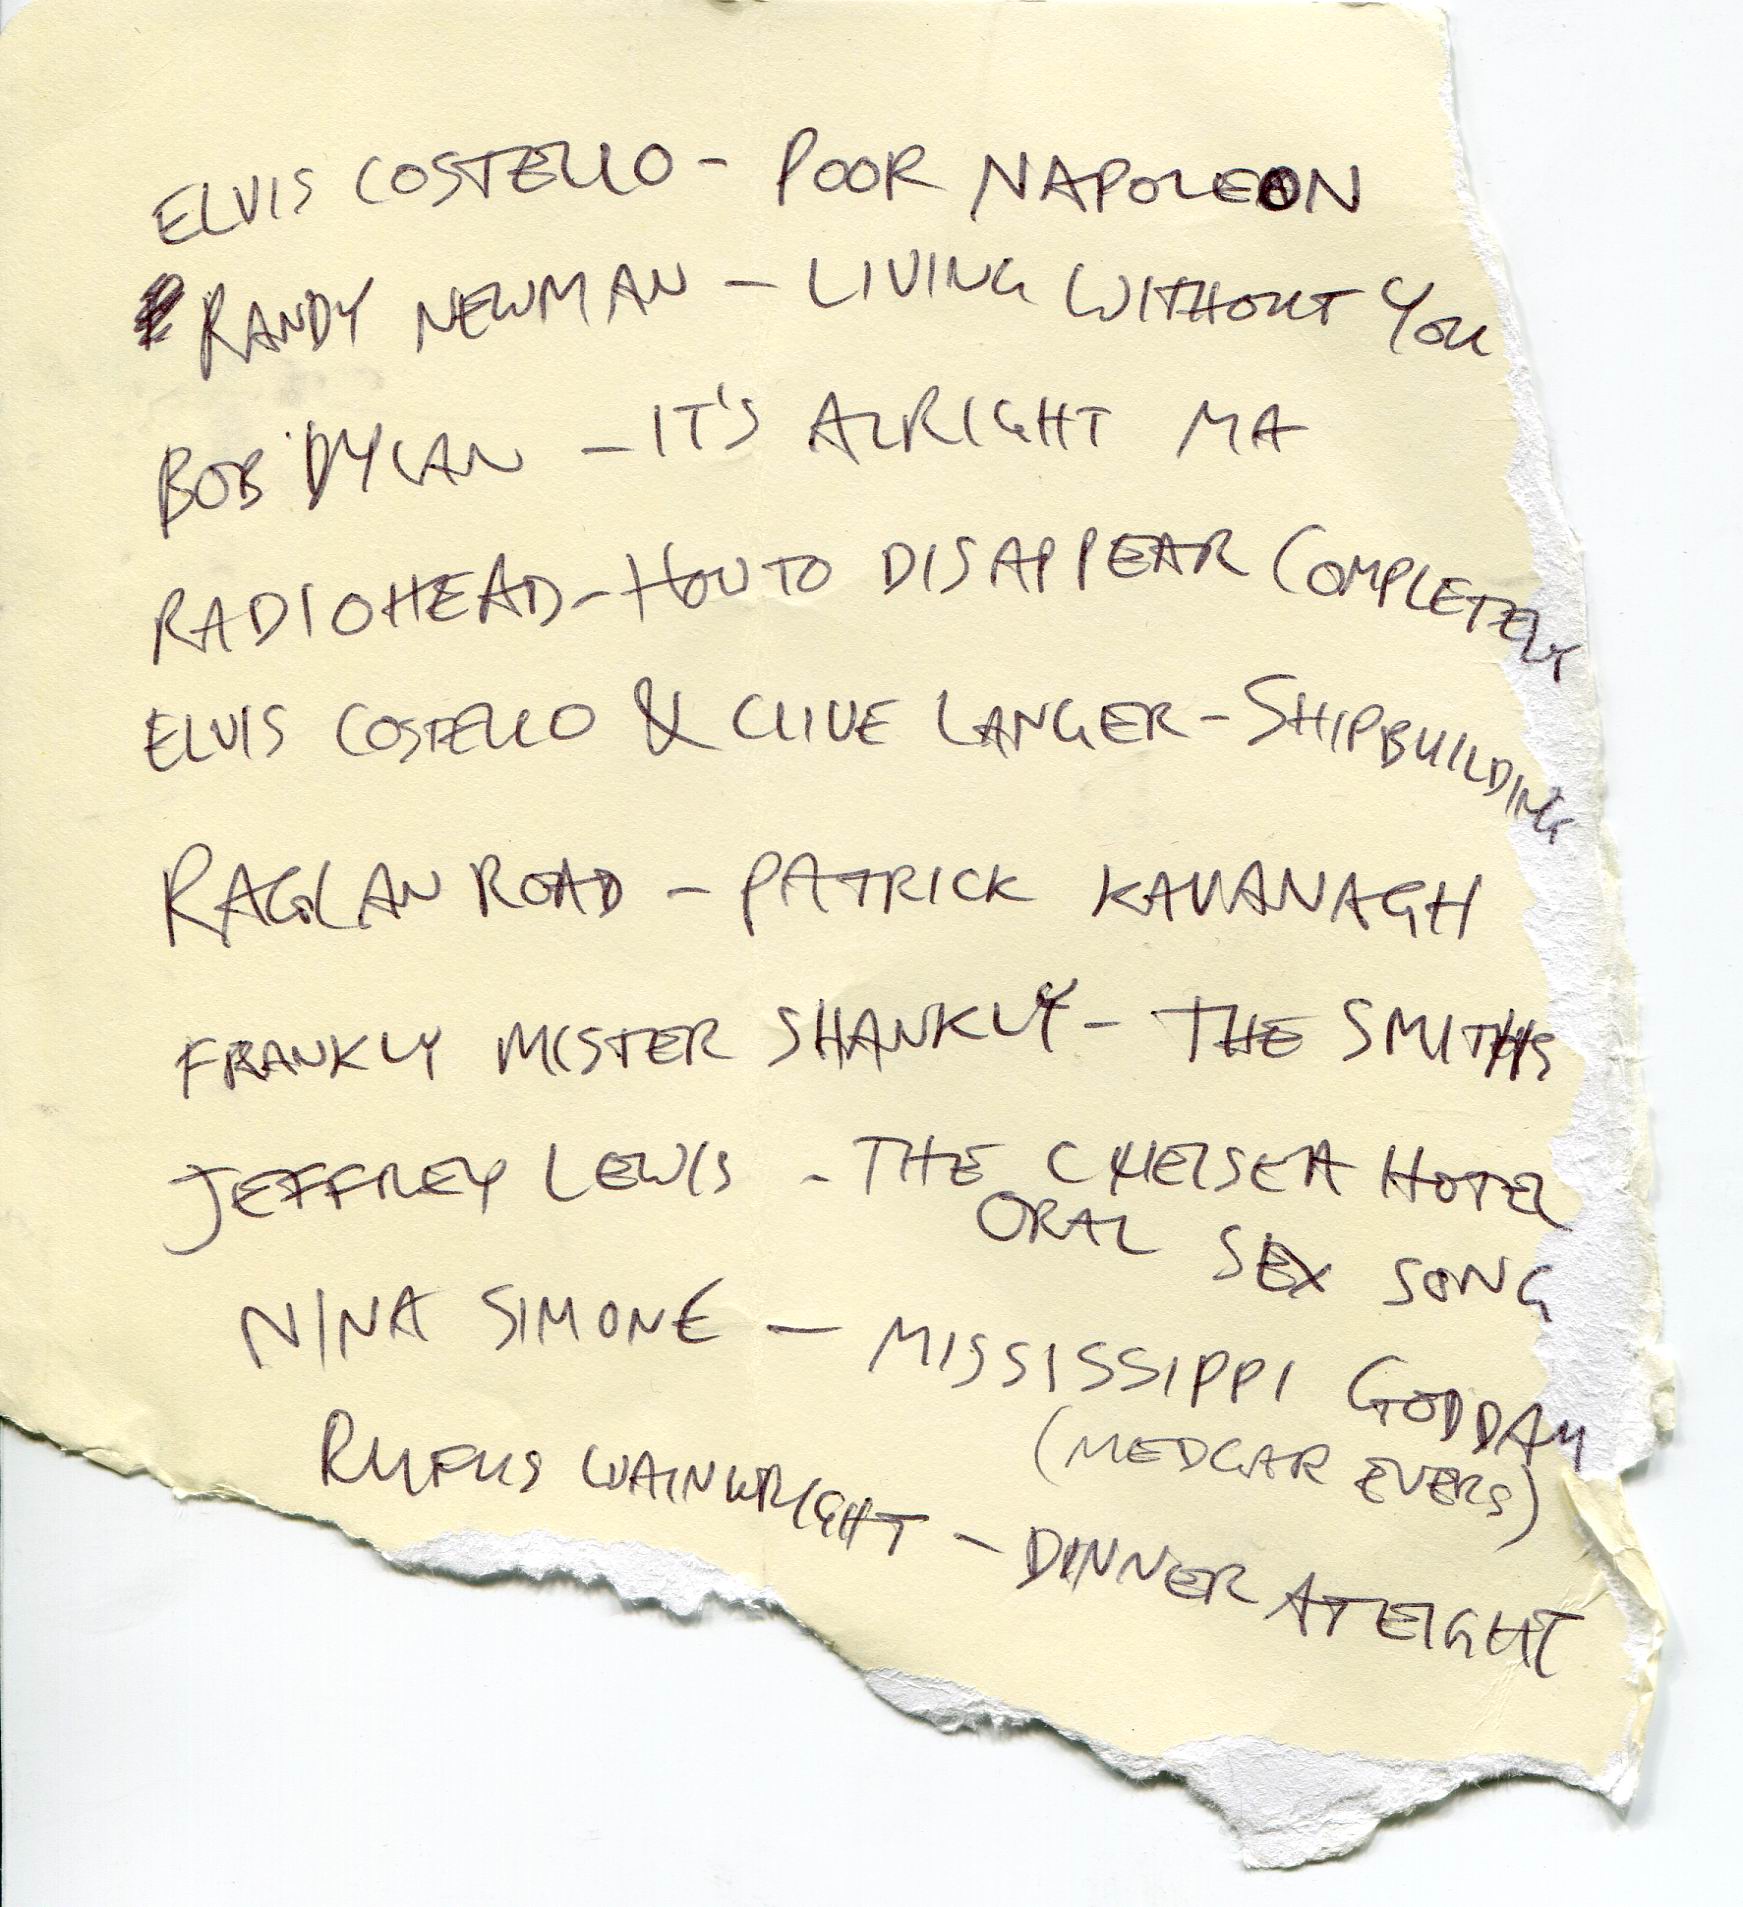 ELVIS COSTELLO - POOR NAPOLEON
RANDY NEWMAN - LIVING WITHOUT YOU
BOB DYLAN - IT'S ALRIGHT MA
RADIOHEAD - HOW TO DISAPPEAR COMPLETELY
ELVIS COSTELLO & CLIVE LANGER - SHIPBUILDING
RAGLAN ROAD - PATRICK KAVANAGH
FRANKLY MISTER SHANKLY - THE SMITHS
JEFFREY LEWIS - THE CHELSEA HOTEL
ORAL SEX SONG
NINA SIMONE - MISSISSIPPI GODDAM
(MEDGAR EVERS)
RUFUS WAINWRIGHT - DINNER AT EIGHT